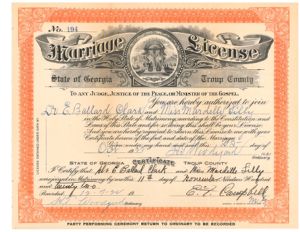 No. 194
Marriage License
State of Georgia Troup County
TO ANY JUDGE, JUSTICE OF THE PEACE, OR MINISTER OF THE GOSPEL.
You are hereby authorized to join
Dr. E. Ballard Clark and Miss
in the Holy State of Matrimony, according to the Constitution and
Laws of this State and for so doing this shall be your
And you are hereby required to return this License to me with your
Certificate hereon of the fact and date of the Marriage.
Given under my hand and seal this day
STATE OF GEORGIA Certificate TROUP COUNTY
I Certify that Dr. E. Ballard Clark and Miss
were joined in Matrimony by me this 11th day of November Nineteen Hundred
and twenty two
Recorded
PARTY PERFORMING CEREMONY RETURN TO ORDINARY TO BE RECORDED